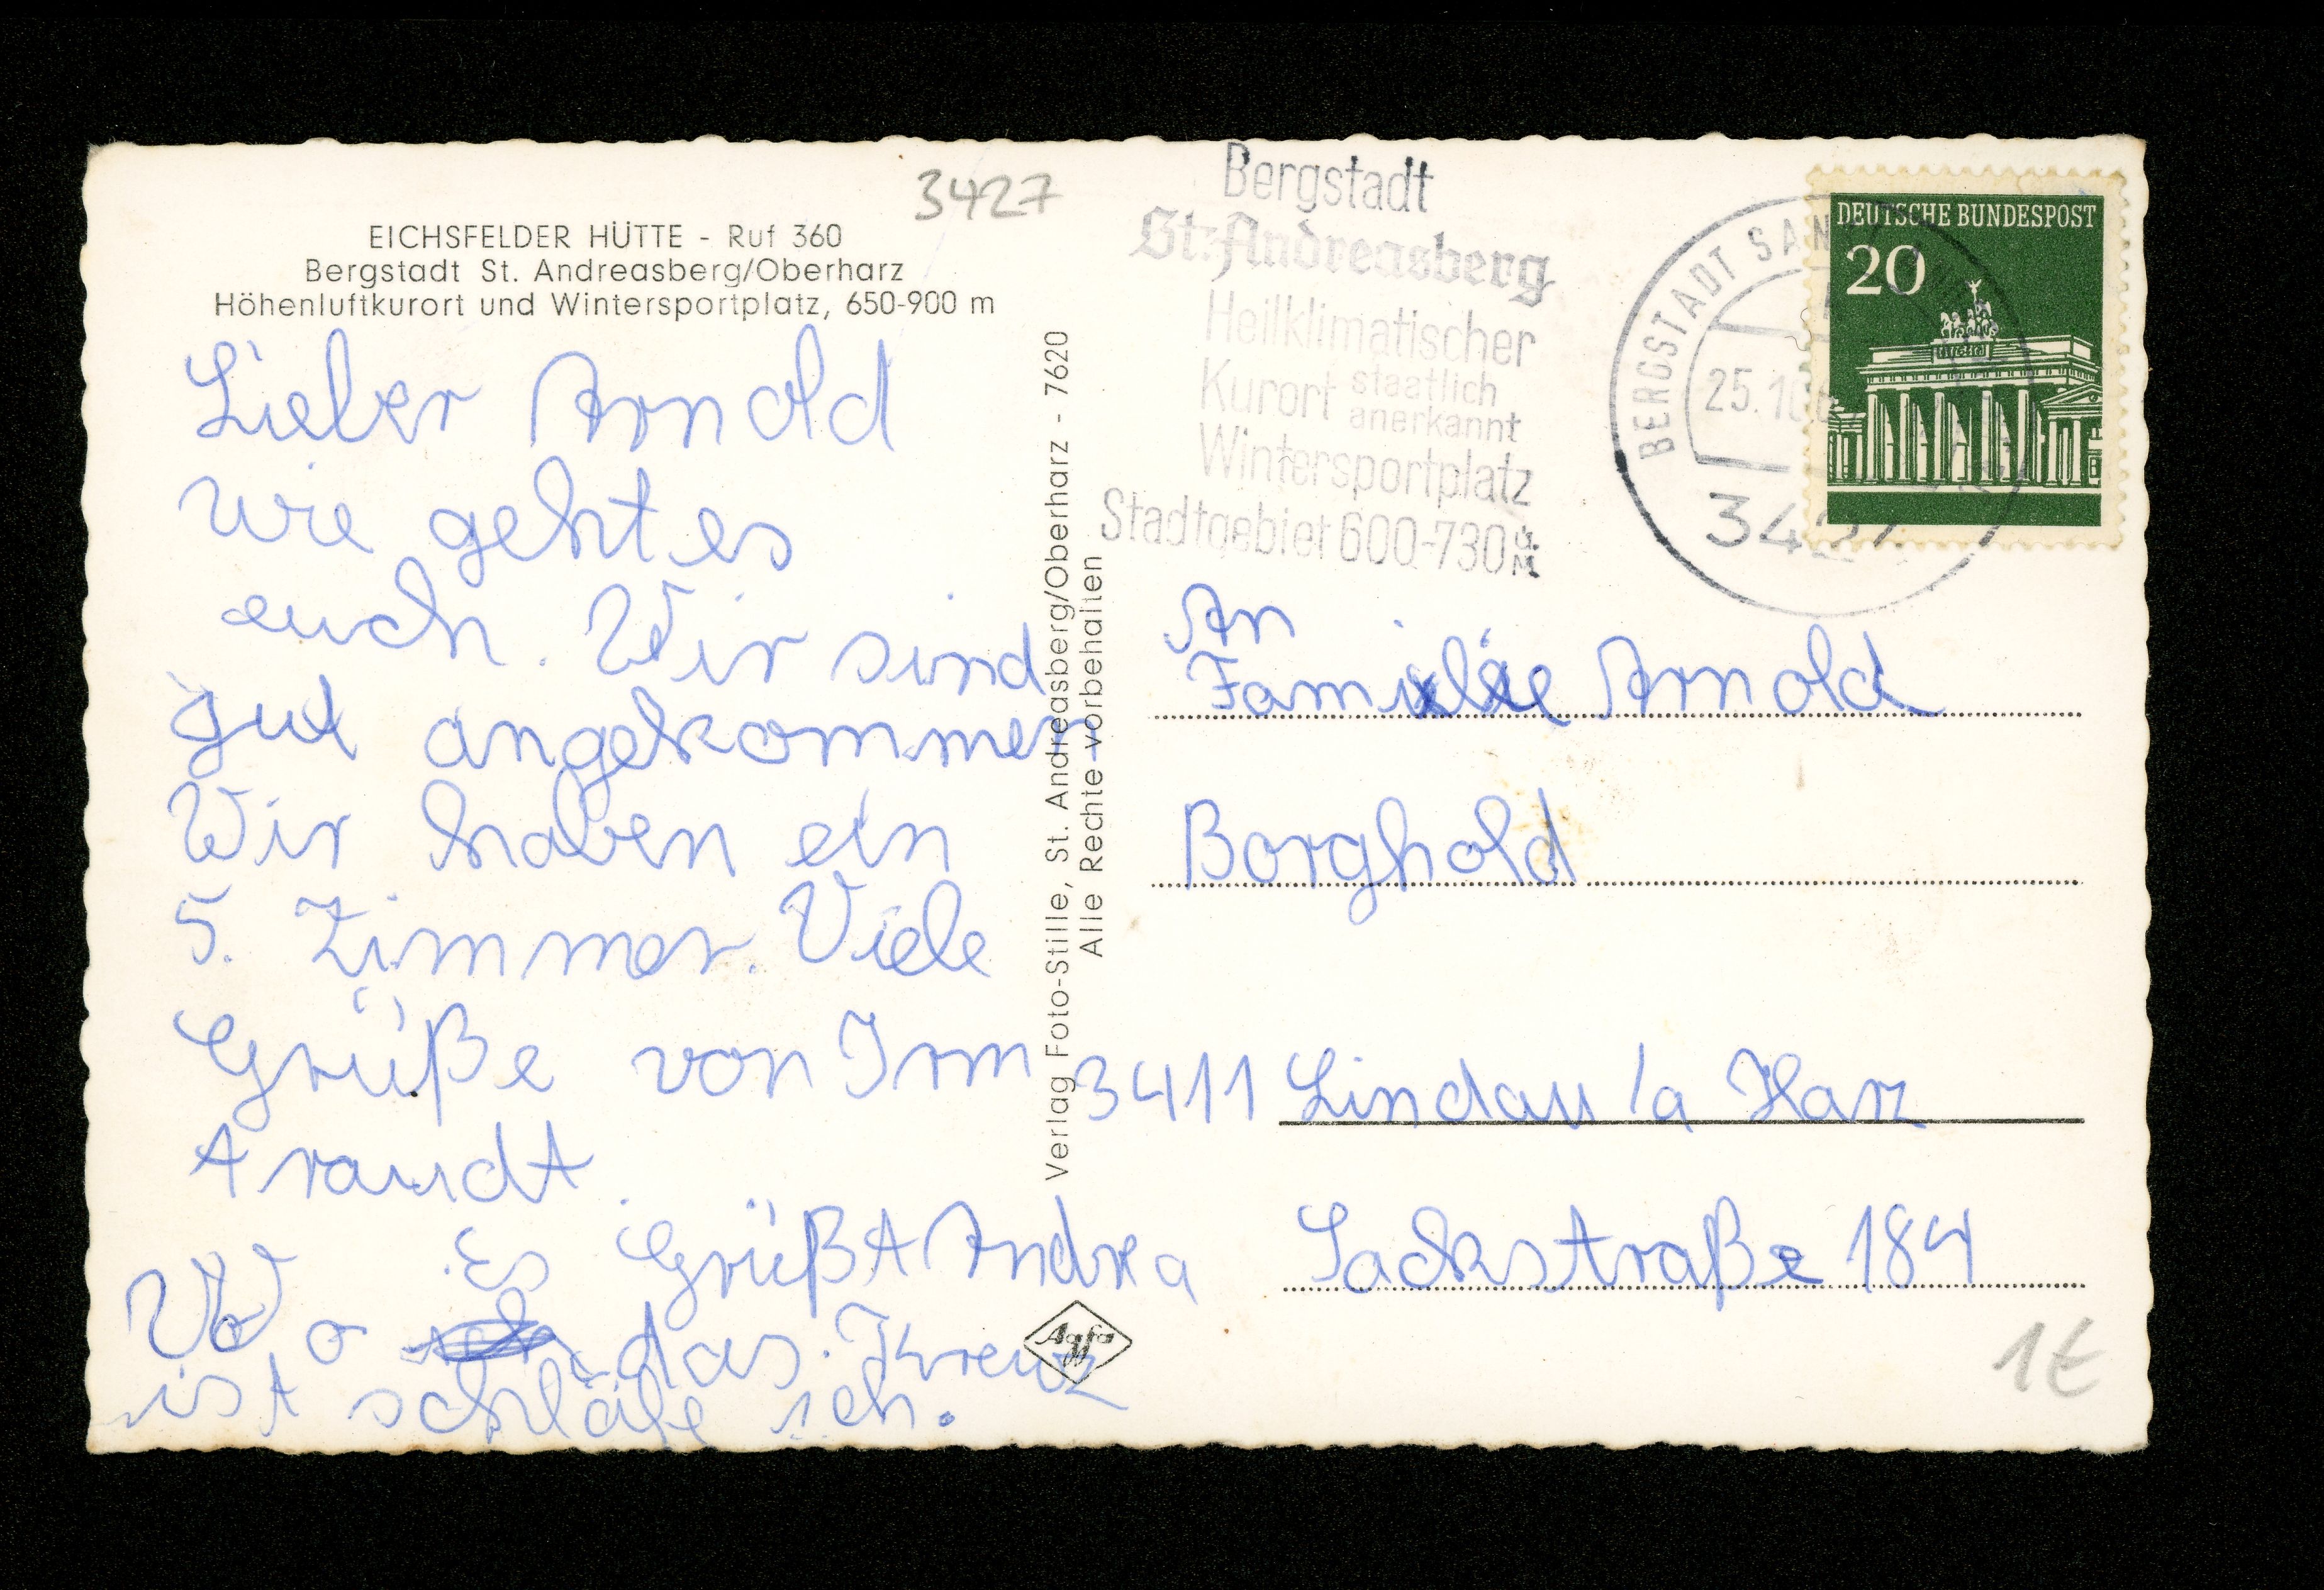 3427
EICHSFELDER HÜTTE - Ruf 360
Bergstadt St. Andreasberg/Oberharz
Höhenluftkurort und Wintersportplatz, 650-900 m
Lieber Arnold
wie geht es
euch. Wir sind
gut angekommen
Wir haben ein
5. Zimmer. Viele
Grüße von Irm
Arandt.
Es Grüßt Andrea
Wo das Kreuz
ist schläfe ich.
Verlag Foto-Stille, St. Andreasberg/Oberharz - 7620
Alle Rechte vorbehalten
Agfa
Bergstadt
St. Andreasberg
Heilklimatischer
Kurort staatlich
anerkannt
Wintersportplatz
Stadtgebiet 600-730 ü.M.
BERGSTADT SANKT
25.10
3427
DEUTSCHE BUNDESPOST
20
An
Familie Arnold
Borghold
3411 Lindau /a Harz
Sackstraße 184
1€